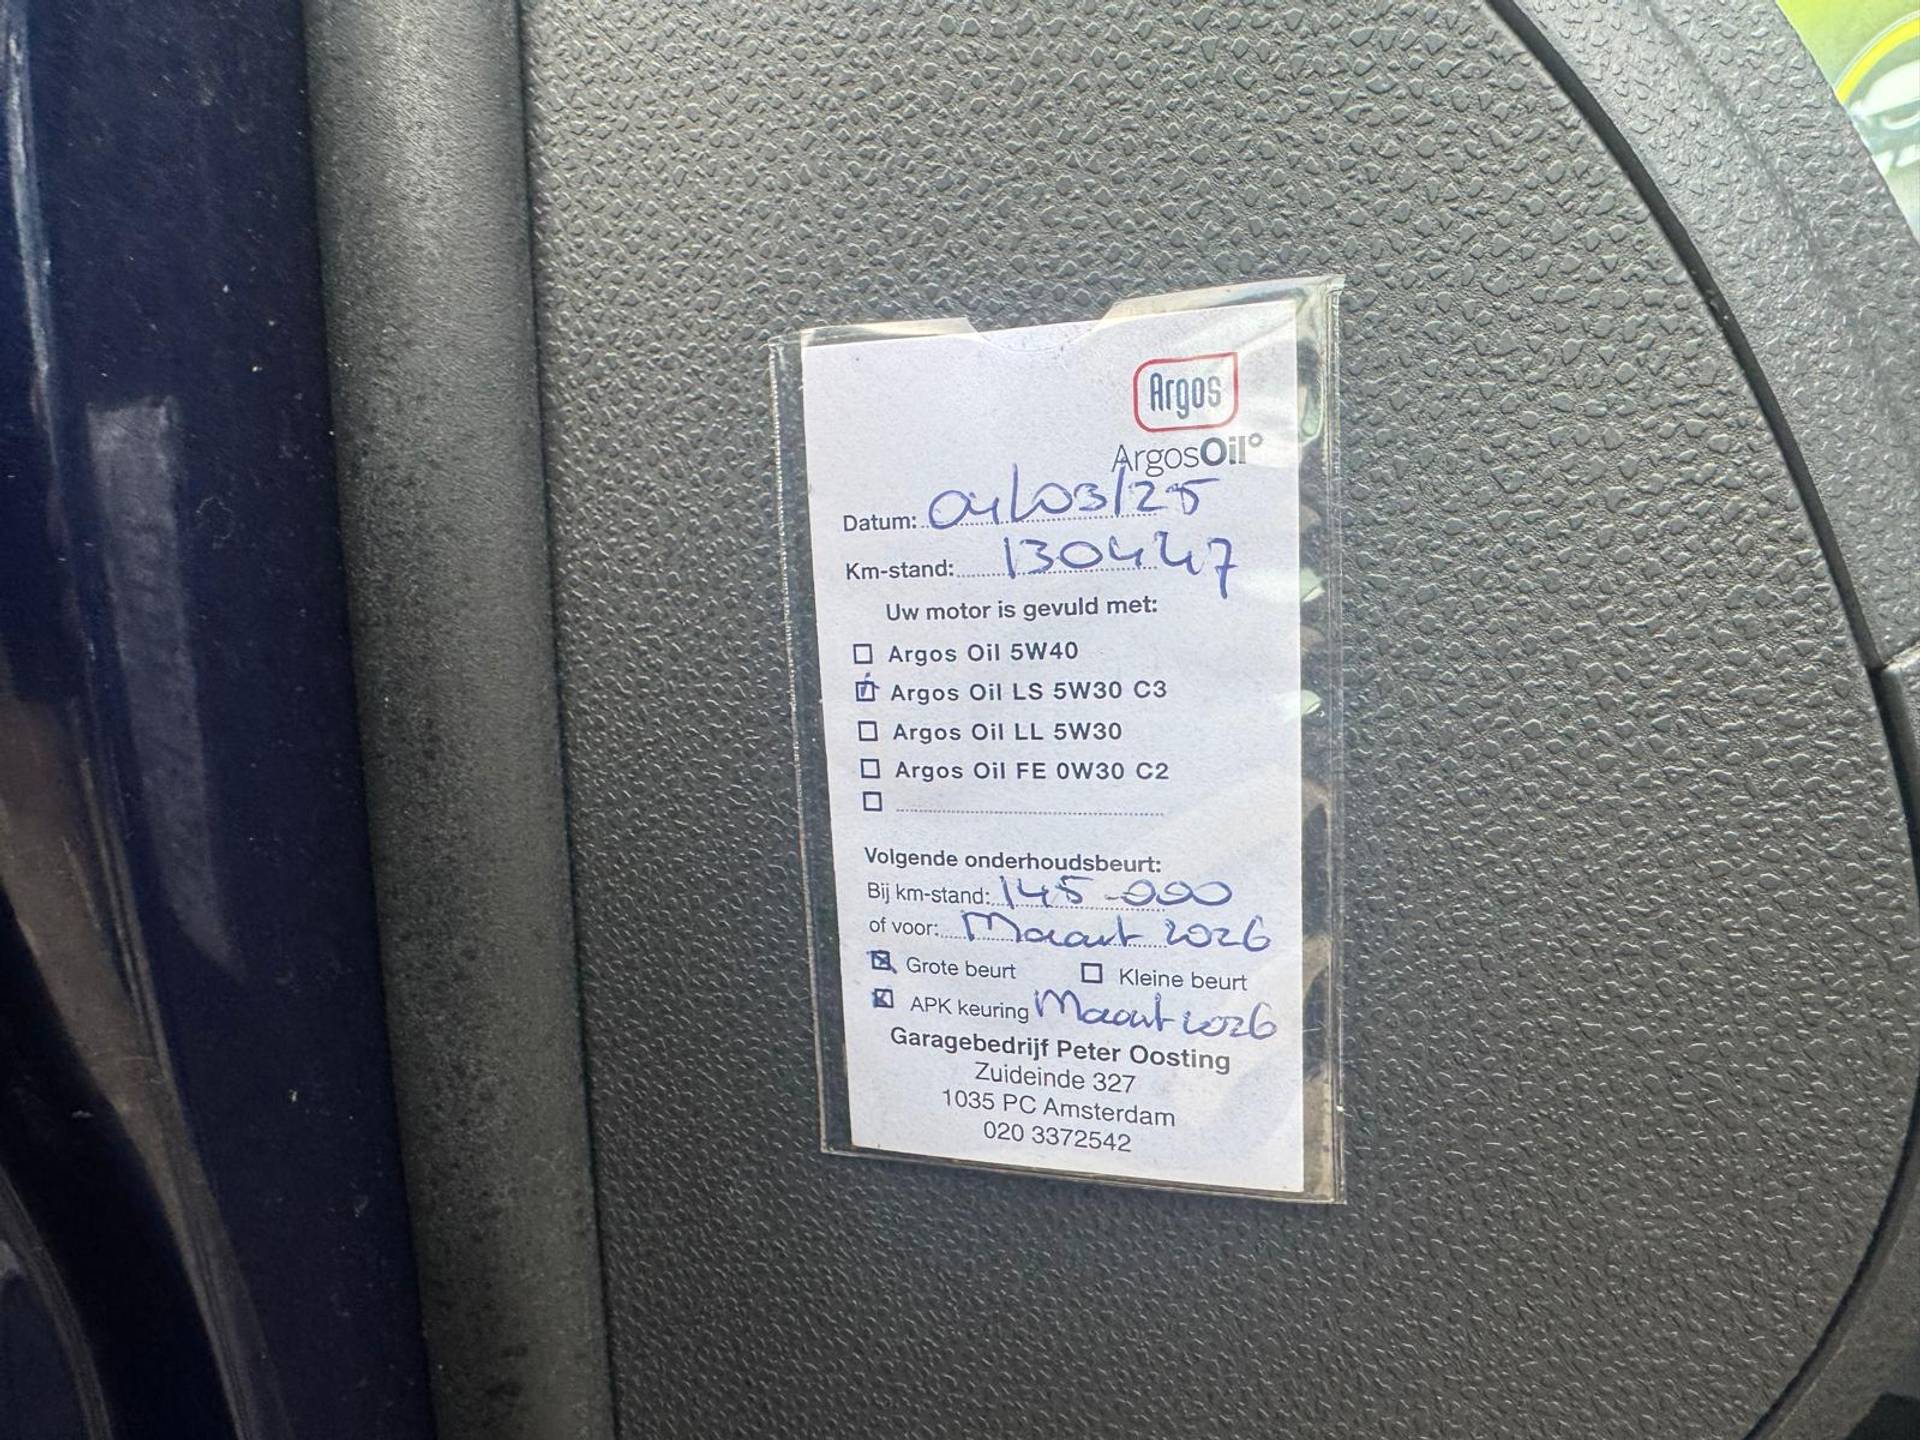 Argos
ArgosOil
Datum: 04/03/25
Km-stand: 130447
Uw motor is gevuld met:
Argos Oil 5W40
Argos Oil LS 5W30 C3
Argos Oil LL 5W30
Argos Oil FE 0W30 C2
Volgende onderhoudsbeurt:
Bij km-stand: 145.000
of voor: Maart 2026
Grote beurt Kleine beurt
APK keuring Maart 2026
Garagebedrijf Peter Oosting
Zuideinde 327
1035 PC Amsterdam
020 3372542